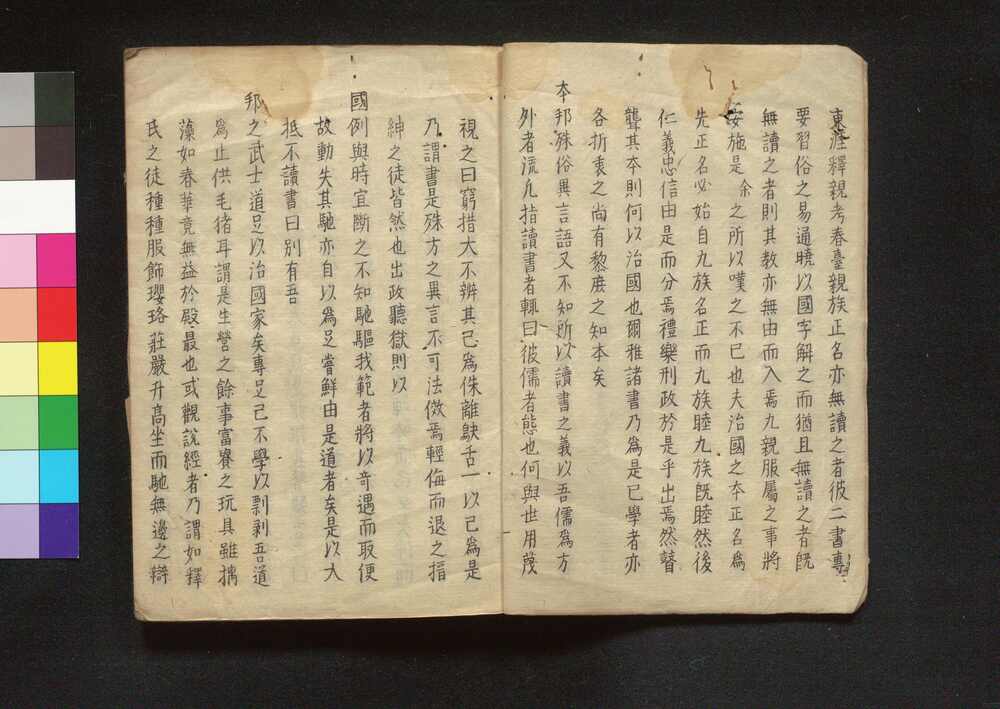 東涯釋親考春臺親族正名亦無讀之者彼二書專
要習俗之易通曉以國字解之而猶且無讀之者既
無讀之者則其教亦無由而入焉九親服屬之事將
安施是余之所以嘆之不已也夫治國之本正名為
先正名必始自九族名正而九族睦九族既睦然後
仁義忠信由是而分焉禮樂刑政於是乎出焉然瞽
聾其本則何以治國也爾雅諸書乃為是已學者亦
各折衷之尚有黎庶之知本矣
本邦殊俗異言語又不知所以讀書之義以吾儒為方
外者流凡指讀書者輒曰彼儒者態也何與世用蔑
視之曰窮措大不辨其己為侏離鴃舌一以己為是
乃謂書是殊方之異言不可法傚焉輕侮而退之搢
紳之徒皆然也出政聽獄則以
國例與時宜斷之不知馳驅我範者將以奇遇而取便
故動失其馳亦自以為足嘗鮮由是道者矣是以大
抵不讀書曰別有吾
邦之武士道足以治國家矣專足己不學以剽剥吾道
為止供毛猪耳謂是生營之餘事富賽之玩具雖摛
藻如春華竟無益於殿最也或觀說經者乃謂如釋
氏之徒種種服飾瓔珞莊嚴升高坐而馳無邊之辯